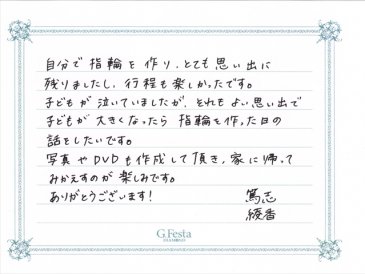 自分で指輪を作り、とても思い出に
残りましたし、行程も楽しかったです。
子どもが泣いていましたが、それもよい思い出で
子どもが大きくなったら指輪を作った日の
話をしたいです。
写真やDVDも作成して頂き、家に帰って
みかえすのが楽しみです。
ありがとうございます!
篤志
綾香
G.Festa